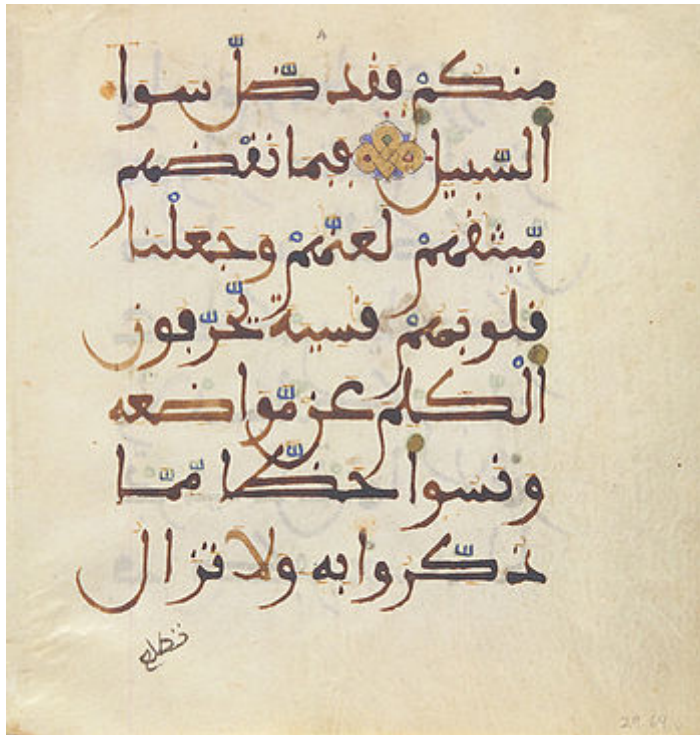 منكم فقد ضّل سوا
السّبيل فبما نقضهم
مّيثقهم لعنّهم وجعلنا
قلوبهم قسية يّحرّفون
الكلم عن مّواضعه
ونسوا حظّا مّمّا
ذكّروا به ولا تزال
تطلع
29.64